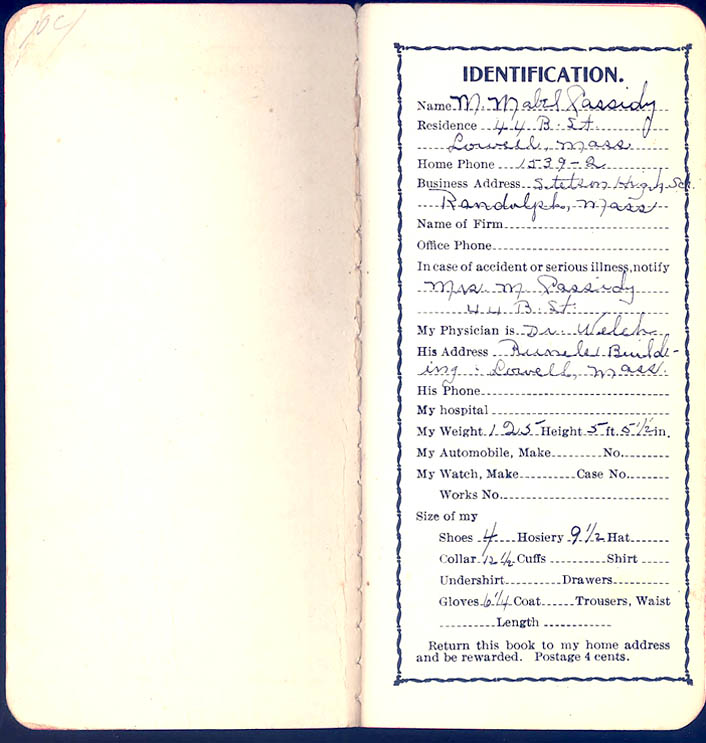 IDENTIFICATION.
Name M. Mabel Cassidy
Residence 44 B. St.
Lowell, Mass
Home Phone 1539-2
Business Address Stetson High Sch.
Randolph, Mass
Name of Firm
Office Phone
In case of accident or serious illness, notify
Mrs. M Cassidy
44 B. St.
My Physician is Dr. Welch
His Address Runels Build-
ing. Lowell, Mass.
His Phone
My hospital
My Weight 125 Height 5 ft. 5 1/2 in.
My Automobile, Make No.
My Watch, Make Case No.
Works No.
Size of my
Shoes 4 Hosiery 9 1/2 Hat
Collar 12 1/2 Cuffs Shirt
Undershirt Drawers
Gloves 6 1/4 Coat Trousers, Waist
Length
Return this book to my home address
and be rewarded. Postage 4 cents.